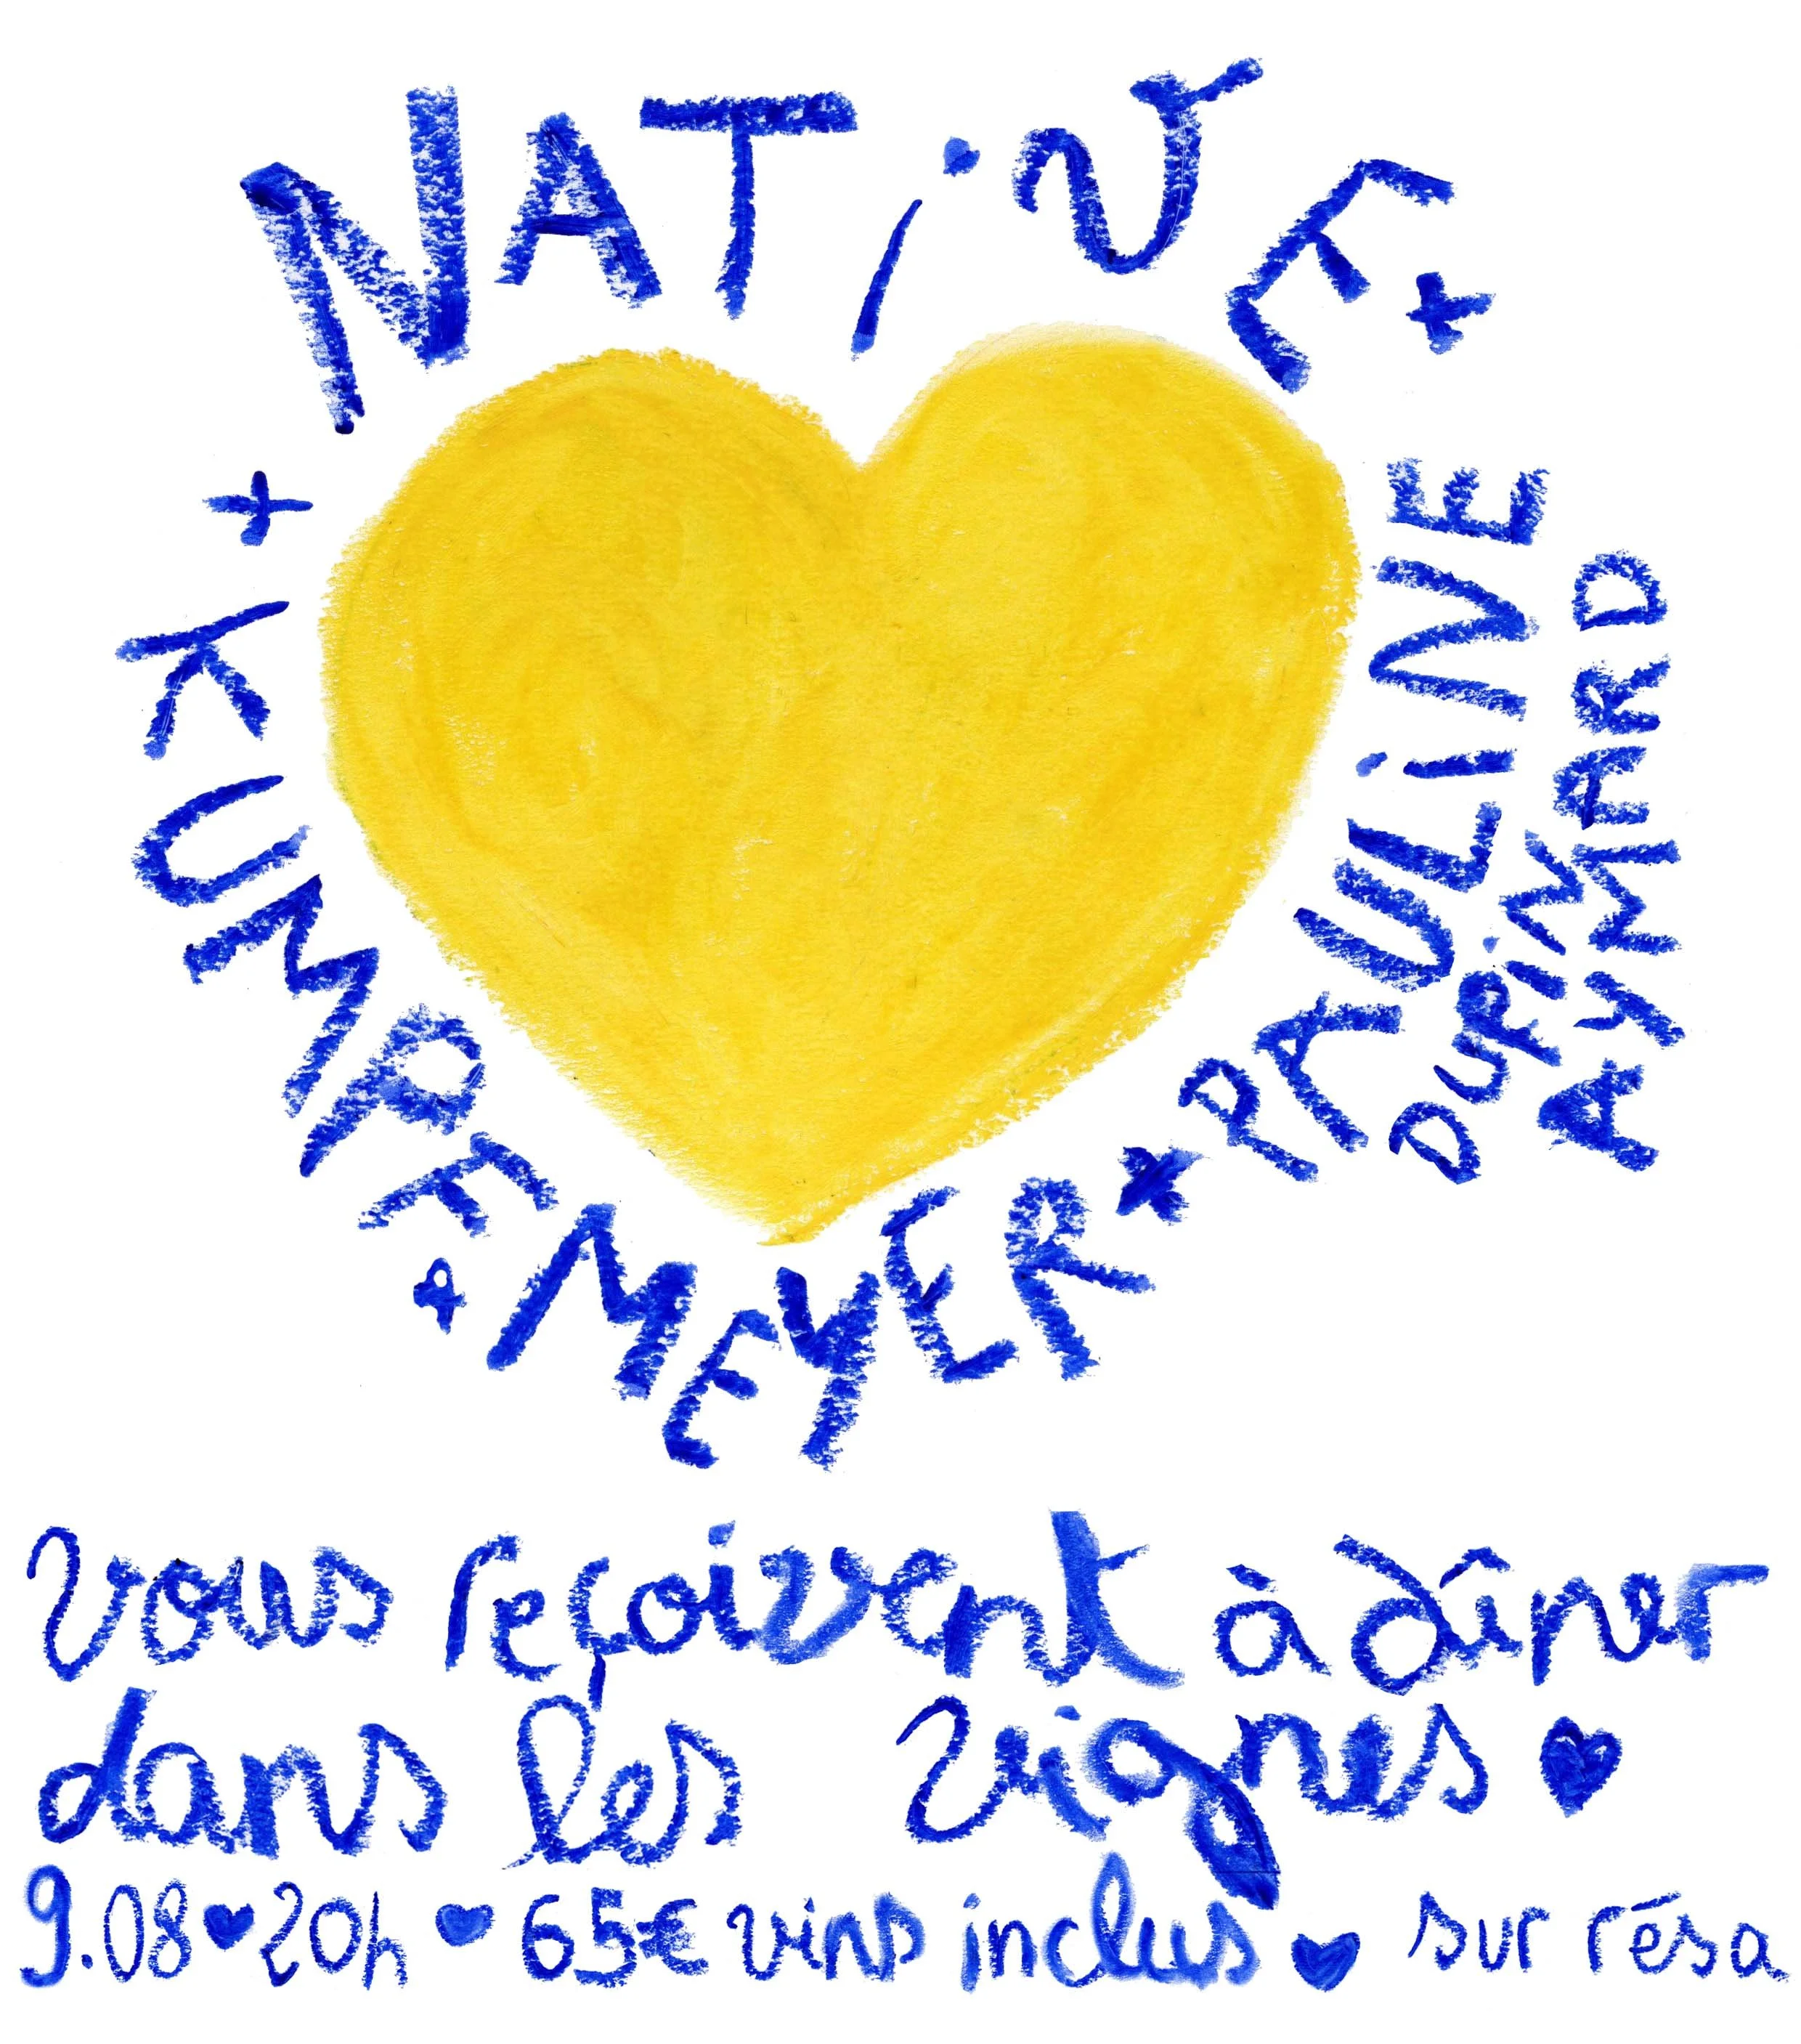 NATiVE +
PAULiNE
DUPiN
AYMARD
+ KUMPF & MEYER +
vous reçoivent à dîner
dans les vignes ♥
9.08 ♥ 20h ♥ 65€ vins inclus ♥ sur résa